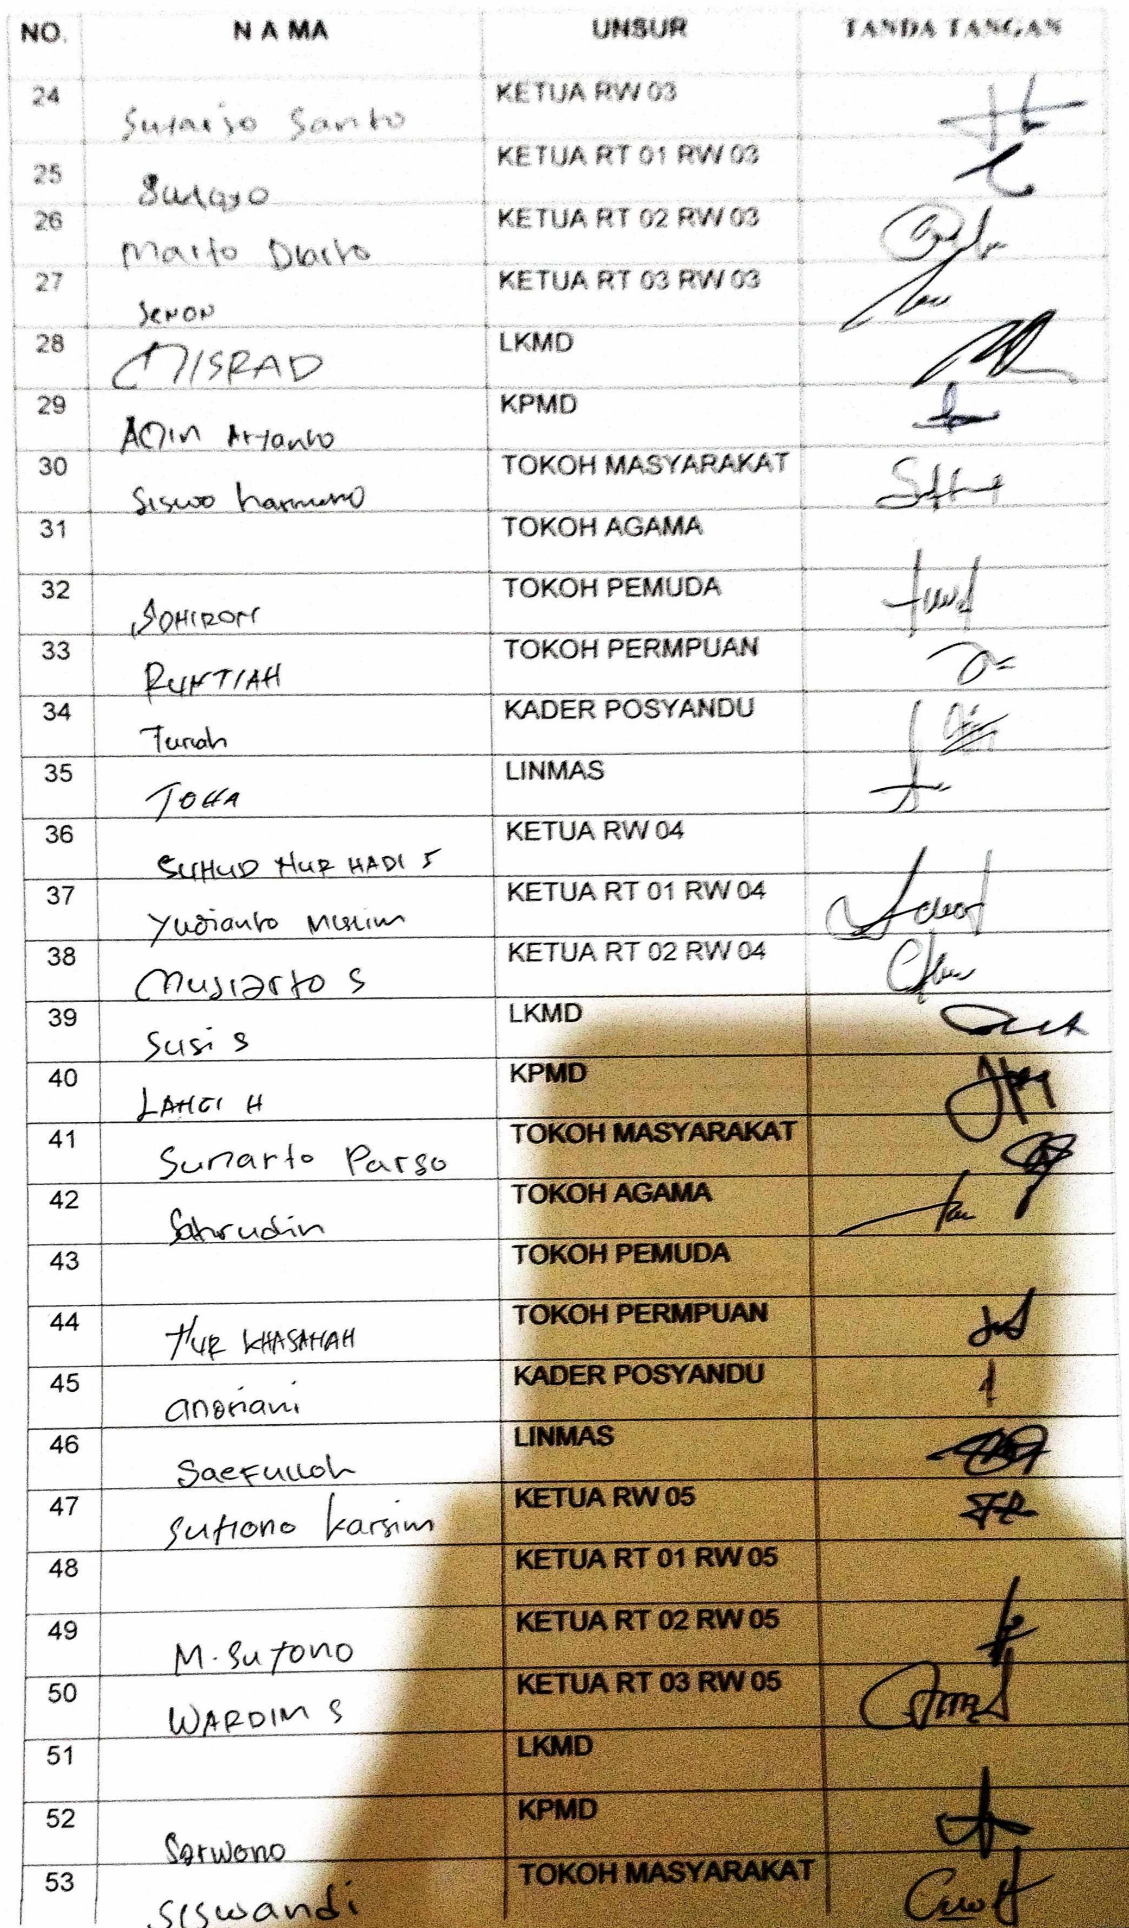 NO. N A M A UNSUR TANDA TANGAN
24 Sutarso Santo KETUA RW 03
25 KETUA RT 01 RW 03
26 Marto KETUA RT 02 RW 03
27 SENON KETUA RT 03 RW 03
28 MISRAD LKMD
29 Amin Aryanto KPMD
30 Siswo harmono TOKOH MASYARAKAT
31 TOKOH AGAMA
32 SOHIRON TOKOH PEMUDA
33 RUNTIAH TOKOH PERMPUAN
34 Turiah KADER POSYANDU
35 TOHA LINMAS
36 SUHUD NUR HADI S KETUA RW 04
37 Yudianto Muslim KETUA RT 01 RW 04
38 Musiarto S KETUA RT 02 RW 04
39 Susi S LKMD
40 H KPMD
41 Sunarto Parso TOKOH MASYARAKAT
42 Sahrudin TOKOH AGAMA
43 TOKOH PEMUDA
44 NUR KHASANAH TOKOH PERMPUAN
45 andriani KADER POSYANDU
46 Saefulloh LINMAS
47 Sutiono Karsim KETUA RW 05
48 KETUA RT 01 RW 05
49 M. Sutono KETUA RT 02 RW 05
50 WARDIM S KETUA RT 03 RW 05
51 LKMD
52 Sarwono KPMD
53 Siswandi TOKOH MASYARAKAT